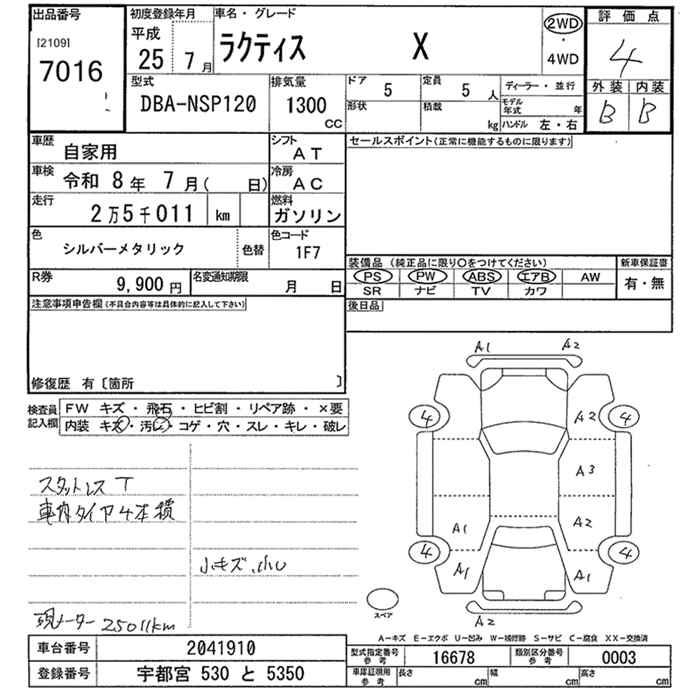 出品番号 初度登録年月 車名・グレード 2WD 評価点
[2109] 平成 ラクティス X ・ 4
7016 25年 7月 4WD 外装 内装
型式 排気量 ドア 5 定員 5人 ディーラー・並行 B B
DBA-NSP120 1300 cc 形状 積載 kg モデル年式 年
ハンドル 左・右
車歴 自家用 シフト AT セールスポイント(正常に機能するものに限ります)
車検 令和 8年 7月( 日) 冷房 AC
走行 2万5千011 km 燃料 ガソリン
色 シルバーメタリック 色替 色コード 1F7
装備品 (純正品に限り○をつけてください) 新車保証書
R券 9,900円 名変通知期限 月 日 PS PW ABS エアB AW 有・無
SR ナビ TV カワ
注意事項申告欄(不具合内容等は具体的に記入して下さい) 後日品
修復歴 有〔箇所 〕
検査員 FW キズ・飛石・ヒビ割・リペア跡・×要
記入欄 内装 キズ・汚レ・コゲ・穴・スレ・キレ・破レ
A1 A2
4 A2 4
A3
スタットレスT
車内タイヤ4本積
A1 A2
4 A1 A1 4
小キズ、小U
スペア
A2
現メーター 25011km
A-キズ E-エクボ U-凹み W-補修跡 S-サビ C-腐食 XX-交換済
車台番号 2041910 型式指定番号 参考 16678 類別区分番号 参考 0003
登録番号 宇都宮 530 と 5350 車庫証明用 参考 長さ cm 幅 cm 高さ cm